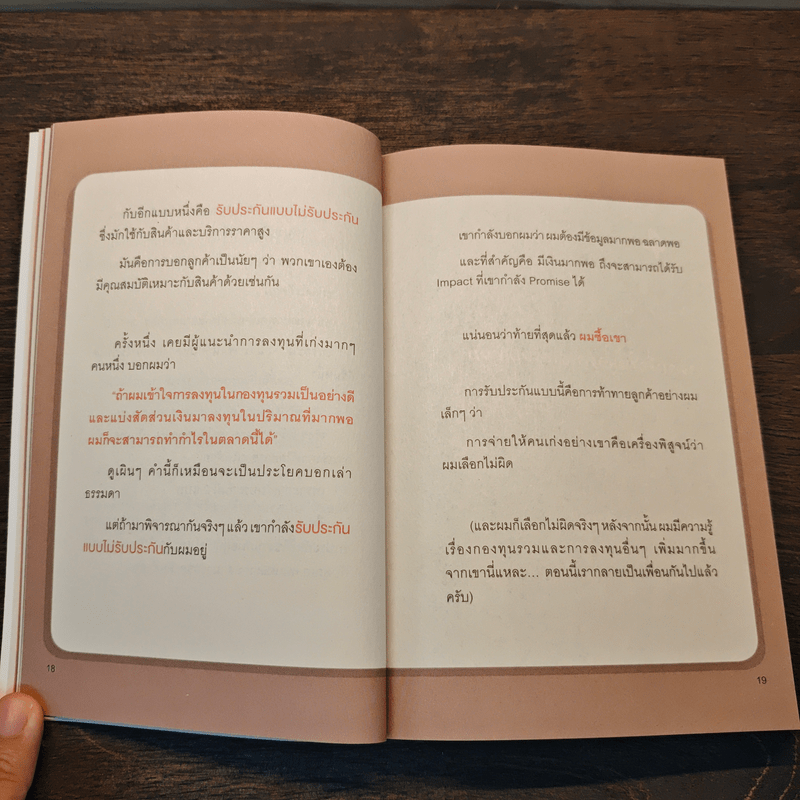 กับอีกแบบหนึ่งคือ รับประกันแบบไม่รับประกัน
ซึ่งมักใช้กับสินค้าและบริการราคาสูง
มันคือการบอกลูกค้าเป็นนัยๆ ว่า พวกเขาเองต้อง
มีคุณสมบัติเหมาะกับสินค้าด้วยเช่นกัน
ครั้งหนึ่ง เคยมีผู้แนะนำการลงทุนที่เก่งมากๆ
คนหนึ่ง บอกผมว่า
"ถ้าผมเข้าใจการลงทุนในกองทุนรวมเป็นอย่างดี
และแบ่งสัดส่วนเงินมาลงทุนในปริมาณที่มากพอ
ผมก็จะสามารถทำกำไรในตลาดนี้ได้"
ดูเผินๆ คำนี้ก็เหมือนจะเป็นประโยคบอกเล่า
ธรรมดา
แต่ถ้ามาพิจารณากันจริงๆ แล้ว เขากำลังรับประกัน
แบบไม่รับประกันกับผมอยู่
18
เขากำลังบอกผมว่า ผมต้องมีข้อมูลมากพอ ฉลาดพอ
และที่สำคัญคือ มีเงินมากพอ ถึงจะสามารถได้รับ
Impact ที่เขากำลัง Promise ได้
แน่นอนว่าท้ายที่สุดแล้ว ผมซื้อเขา
การรับประกันแบบนี้คือการท้าทายลูกค้าอย่างผม
เล็กๆ ว่า
การจ่ายให้คนเก่งอย่างเขาคือเครื่องพิสูจน์ว่า
ผมเลือกไม่ผิด
(และผมก็เลือกไม่ผิดจริงๆ หลังจากนั้น ผมมีความรู้
เรื่องกองทุนรวมและการลงทุนอื่นๆ เพิ่มมากขึ้น
จากเขานี่แหละ... ตอนนี้เรากลายเป็นเพื่อนกันไปแล้ว
ครับ)
19